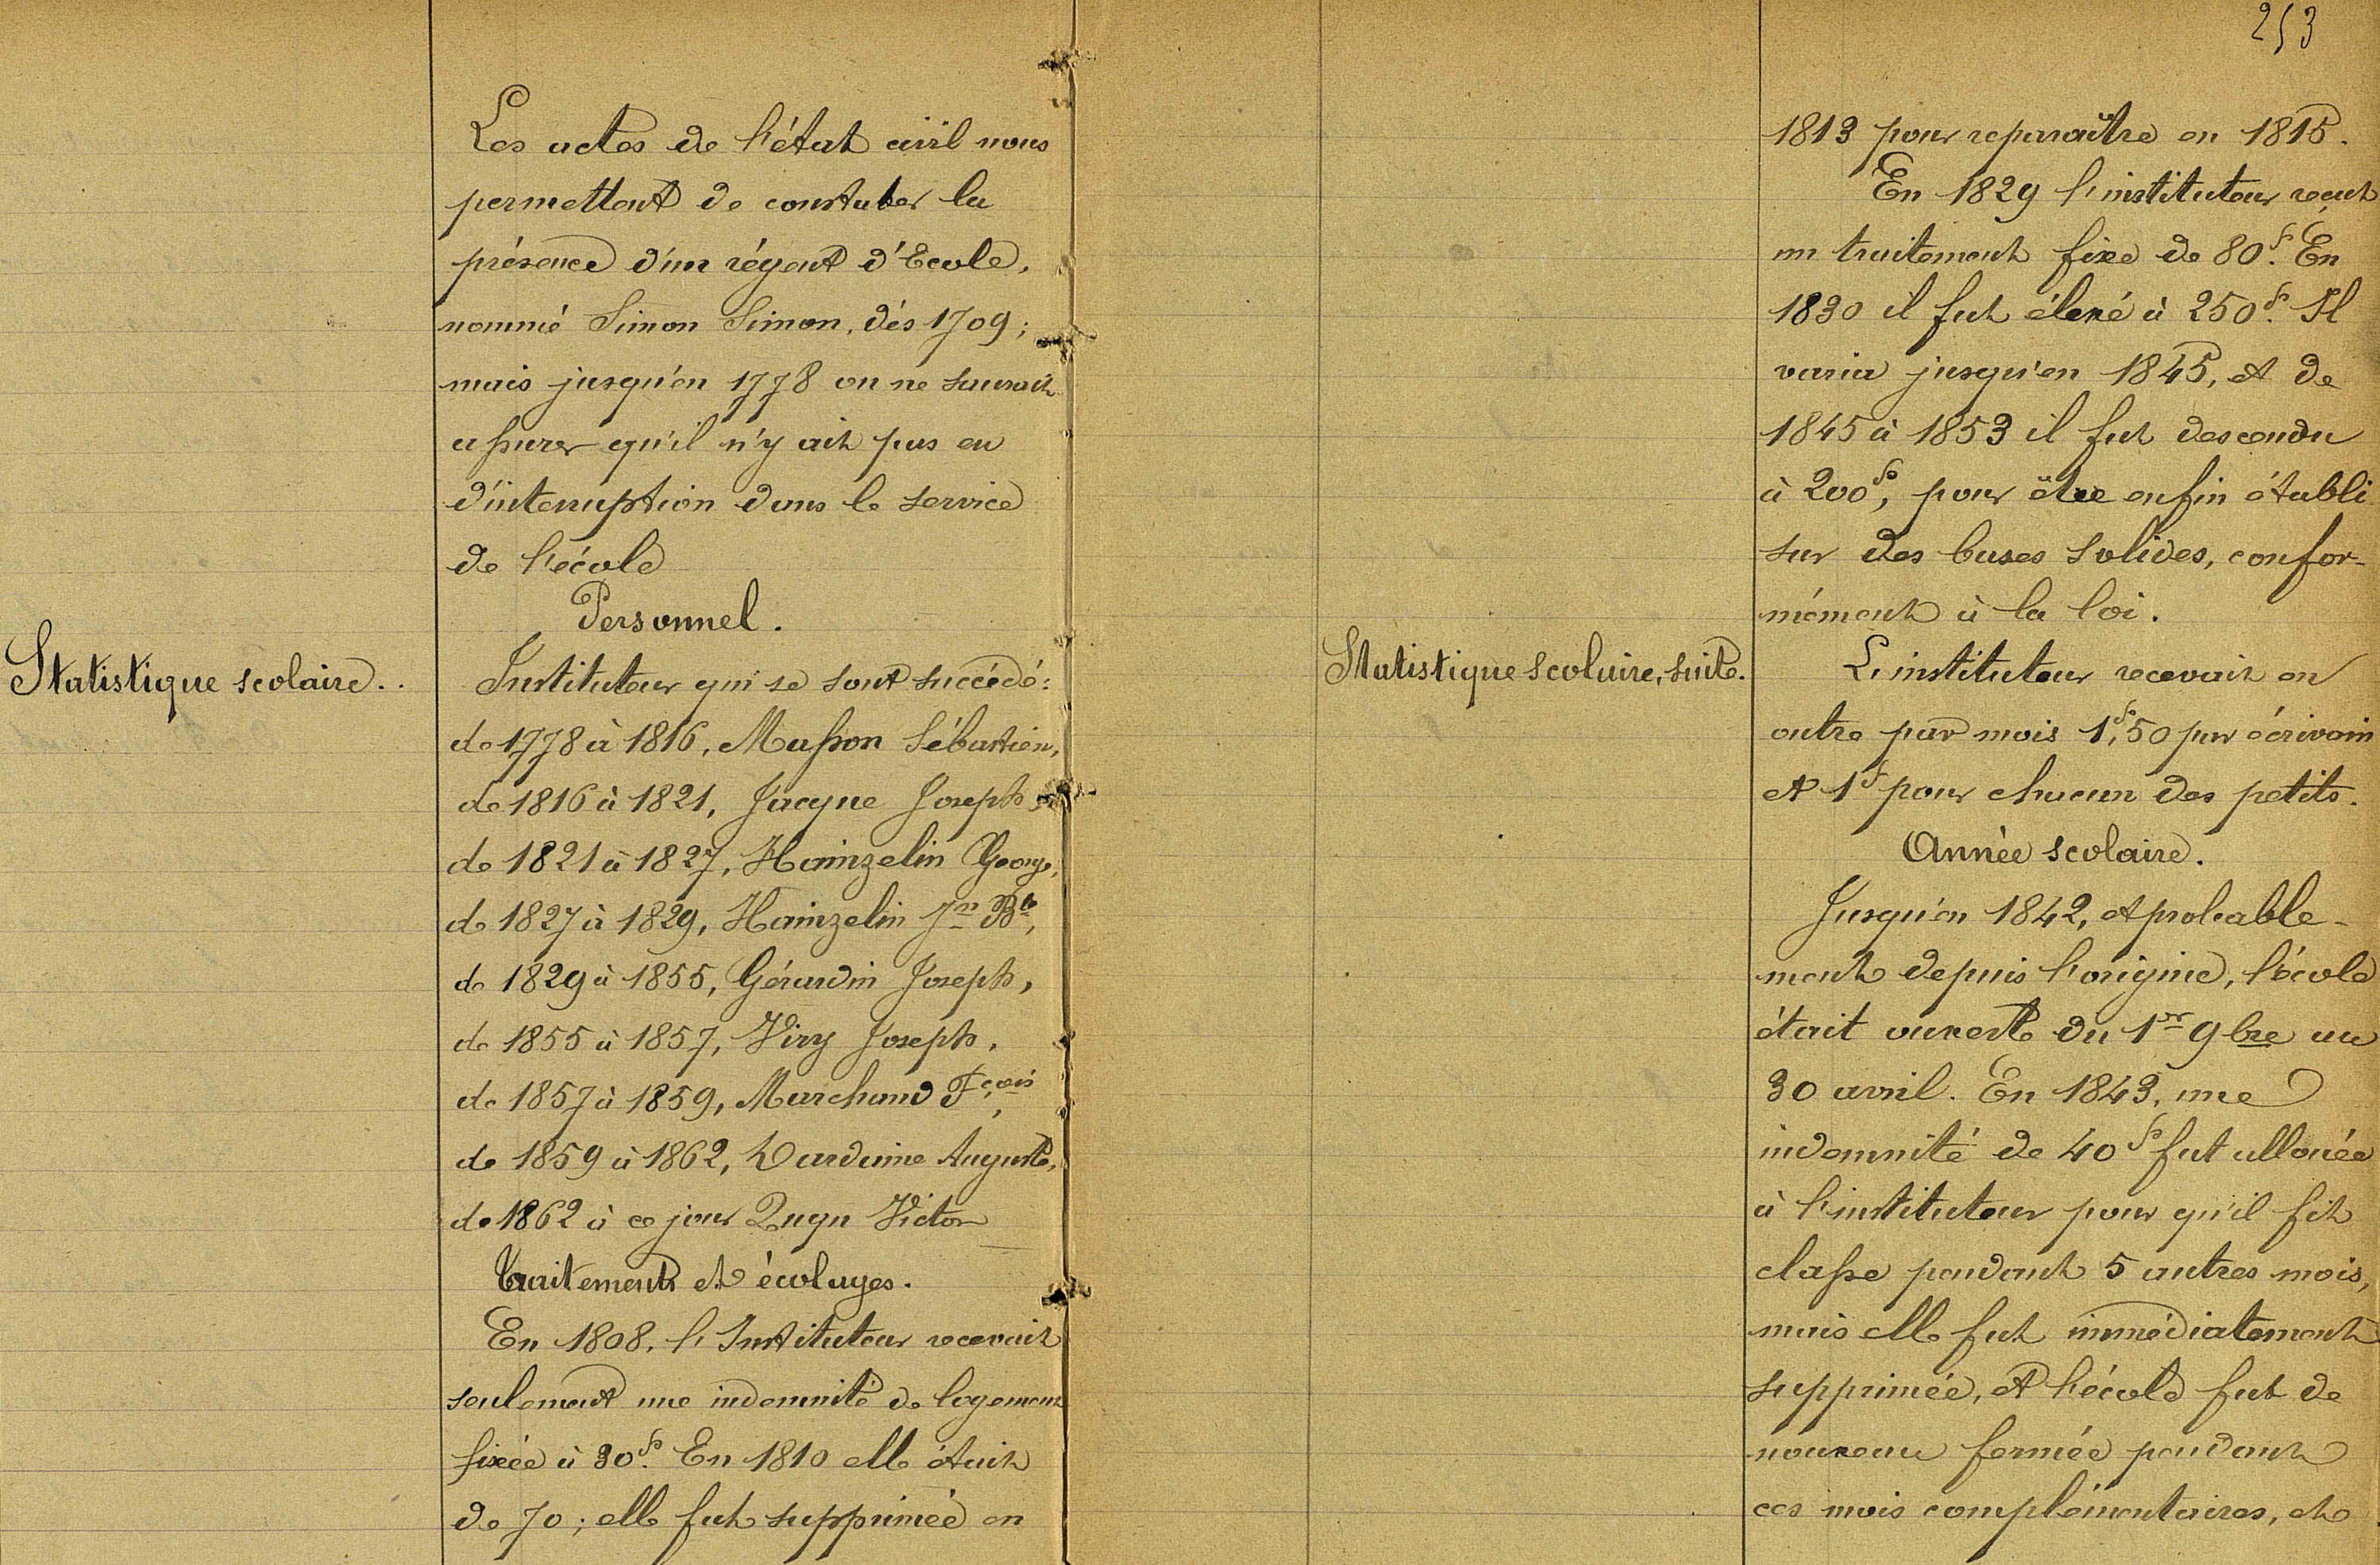 Les actes de l'état civil nous
permettent de constater la
présence d'un régent d'Ecole,
nommé Simon Simon, dès 1709;
mais jusqu'en 1778 on ne saurait
assurer qu'il n'y ait pas eu
d'interruption dans le service
de l'école
Personnel.
Statistique scolaire.
Instituteur qui se sont succédé:
de 1778 à 1816, Masson Sébastien,
de 1816 à 1821, Jacque Joseph
de 1821 à 1827, Hainzelin George,
de 1827 à 1829, Hainzelin Jn Bte,
de 1829 à 1855, Gérardin Joseph,
de 1855 à 1857, Viry Joseph,
de 1857 à 1859, Marchand Fçois,
de 1859 à 1862, Dardaine Auguste,
de 1862 à ce jour Victor
Traitement et écolages.
En 1808, l'Instituteur recevait
seulement une indemnité de logement
fixée à 30f. En 1810 elle était
de 70; elle fut supprimée en
253
1813 pour reparaître en 1815.
En 1829 l'instituteur reçut
un traitement fixe de 80f. En
1830 il fut élevé à 250f. Il
varia jusqu'en 1845, et de
1845 à 1853 il fut descendu
à 200f, pour être enfin établi
sur des bases solides, confor-
mément à la loi.
Statistique scolaire, suite.
L'instituteur recevait en
outre par mois 1f,50 par écrivain
et 1f pour chacun des petits.
Année scolaire.
Jusqu'en 1842, et probable-
ment depuis l'origine, l'école
était ouverte du 1er 9bre au
30 avril. En 1843, une
indemnité de 40f fut allouée
à l'instituteur pour qu'il fît
classe pendant 5 autres mois,
mais elle fut immédiatement
supprimée, et l'école fut de
nouveau fermée pendant
ces mois complémentaires, et